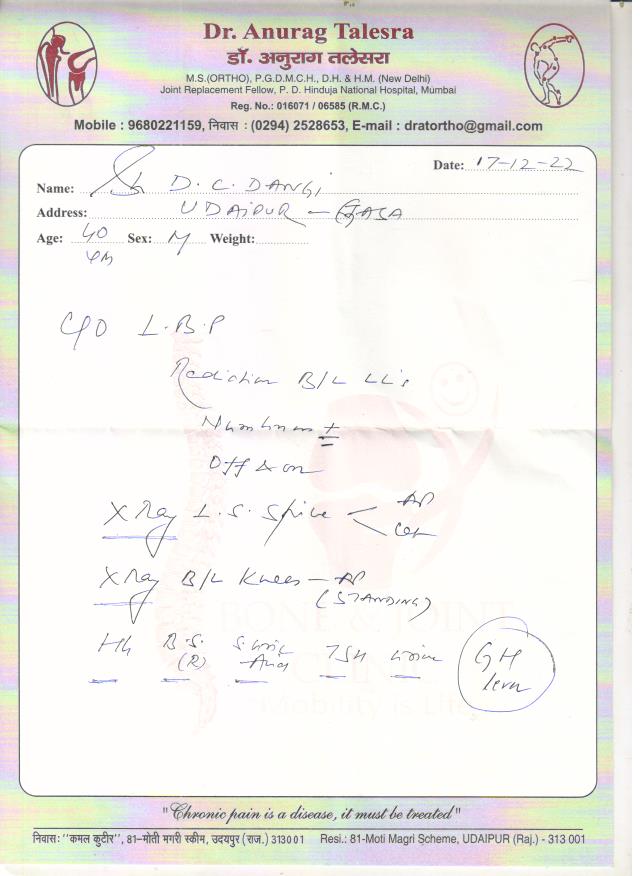 Dr. Anurag Talesra
डॉ. अनुराग तलेसरा
M.S.(ORTHO), P.G.D.M.C.H., D.H. & H.M. (New Delhi)
Joint Replacement Fellow, P. D. Hinduja National Hospital, Mumbai
Reg. No.: 016071 / 06585 (R.M.C.)
Mobile : 9680221159, निवास : (0294) 2528653, E-mail : dratortho@gmail.com
Date: 17-12-22
Name: Sh D. C. DANGI
Address: UDAIPUR -
Age: 40 Sex: M Weight:
C/O L.B.P
Radiation B/L LL's
Numbness +
Off & on
X Ray L.S. Spine < AP
X Ray B/L Knees - AP
(STANDING)
Hb B.S. (R) S. Uric Acid TSH Urine
BONE & JOINT
CLINIC
Mobility is Life
"Chronic pain is a disease, it must be treated"
निवासः "कमल कुटीर", 81-मोती मगरी स्कीम, उदयपुर (राज.) 313001 Resi.: 81-Moti Magri Scheme, UDAIPUR (Raj.) - 313 001